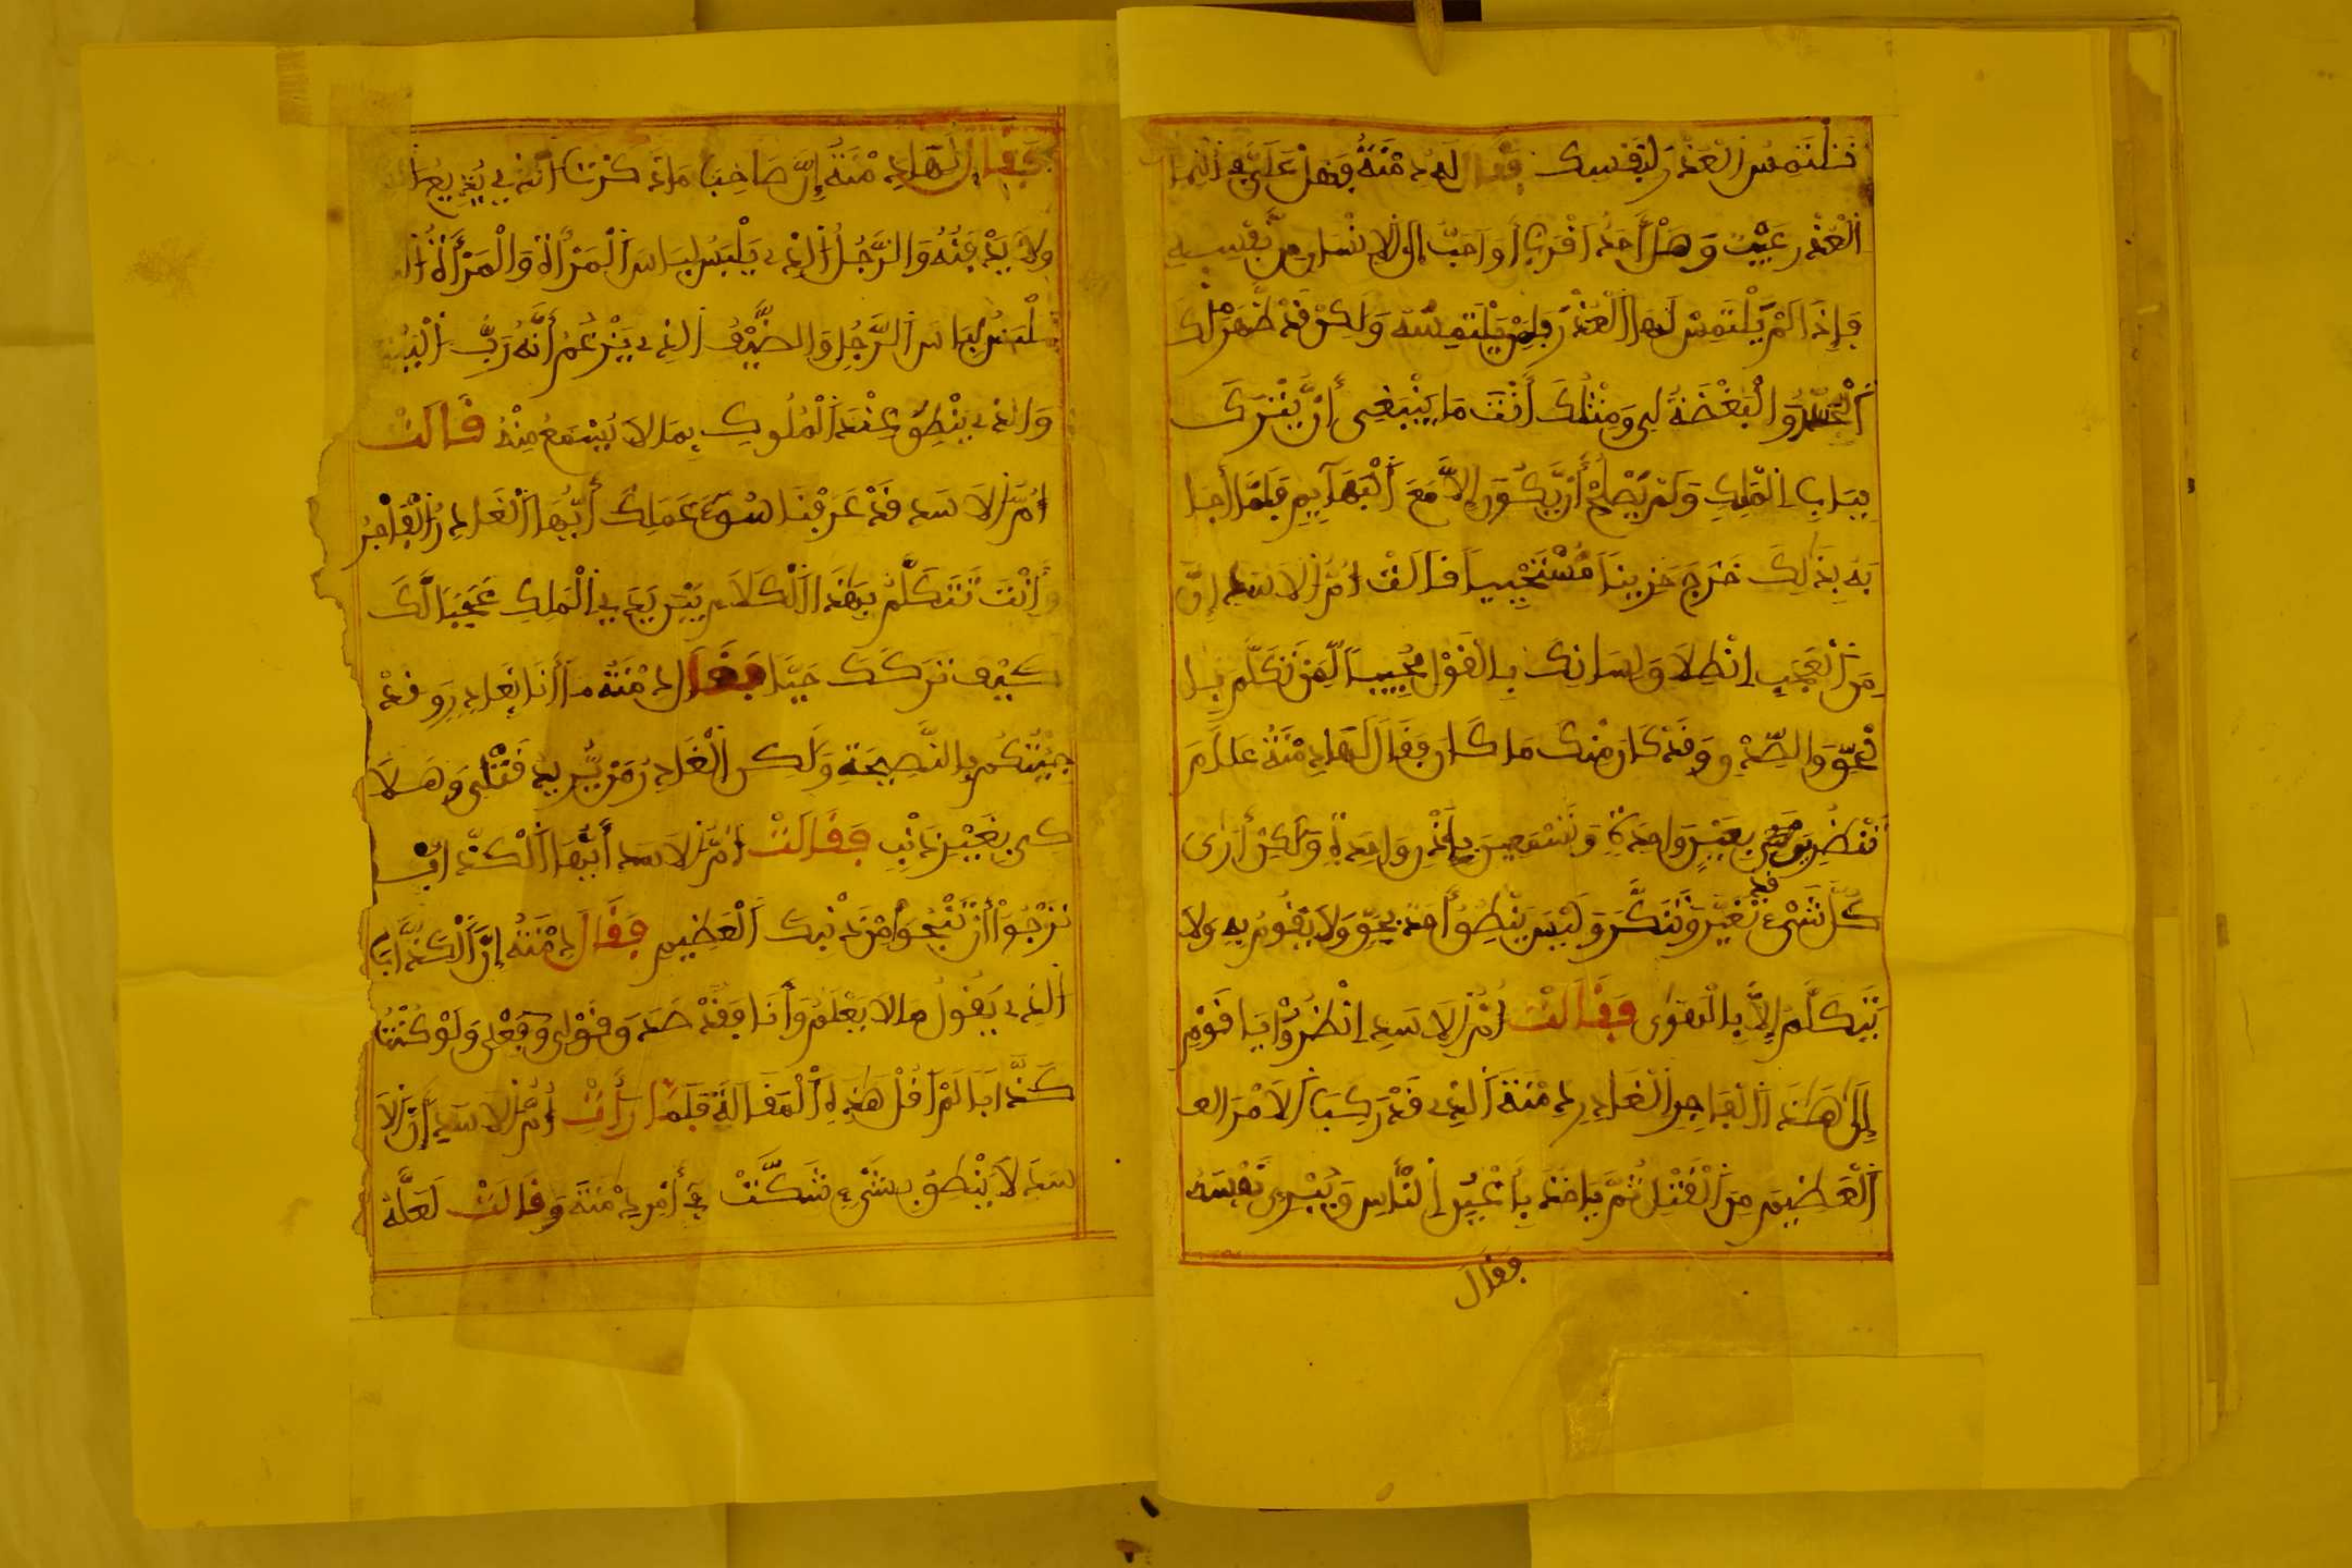 فتلتمس العذر لنفسك فقال له دمنة وهل علي في التماس
العذر عيب وهل أحد اقرب أو احب إلى الانسان من نفسه
فإذا لم يلتمس لها العذر فلمن يلتمسه ولكن قد ظهر لك
الحسد والبغضة لي ومثلك أنت ما ينبغي أن يترك
بباب الملك ولم يصلح أن يكون إلا مع البهايم فلما أجا
به بذلك خرج حزينا مستحييا فالت ام الاسد إن
من العجب إنطلاق لسانك بالقول مجيبا لمن تكلم با
لحق والصدق وقد كان منك ما كان فقال لها دمنة علام
تنظرين بعين واحدة وتسمعين بإذن واحدة ولكن أرى
كل شيء قد تغير وتنكر وليس ينطق أحد بحق ولا يقوم به ولا
يتكلم إلا بالهوى فقالت أم الاسد انظروا يا قوم
إلى هذا الفاجر الغادر دمنة الذي قد ركب الامر
العظيم من القتل ثم ياخذ بأعين الناس ويبري نفسه
فقال
فقال لها دمنة إن صاحب ما ذكرت الذي يذيع
ولا يدفنه والرجل الذي يلبس لباس المرأة والمرأة
تلبس لباس الرجل والضيف الذي يزعم أنه رب البيت
والذي ينطق عند الملوك بما لا يسمع منه قالت
ام الاسد قد عرفنا سوء عملك أيها الغادر الفاجر
وأنت تتكلم بهذا الكلام بين يدي الملك عجبا لك
كيف تركك حيا فقال دمنة ما أنا بغادر وقد
جئتكم بالنصيحة ولكن الغادر من يريد قتلى وهلا
كى بغير ذنب فقالت ام الاسد أيها الكذاب
نرجوا أن تنجوا من ذنبك العظيم فقال دمنة إن الكذاب
الذي يقول ما لا يعلم وأنا فقد صدق قولى وفعلى ولو كنت
كذابا لم اقل هذه المقالة فلما رأت أم الاسد أن الا
سد لا ينطق بشيء شكت في أمر دمنة وقالت لعله